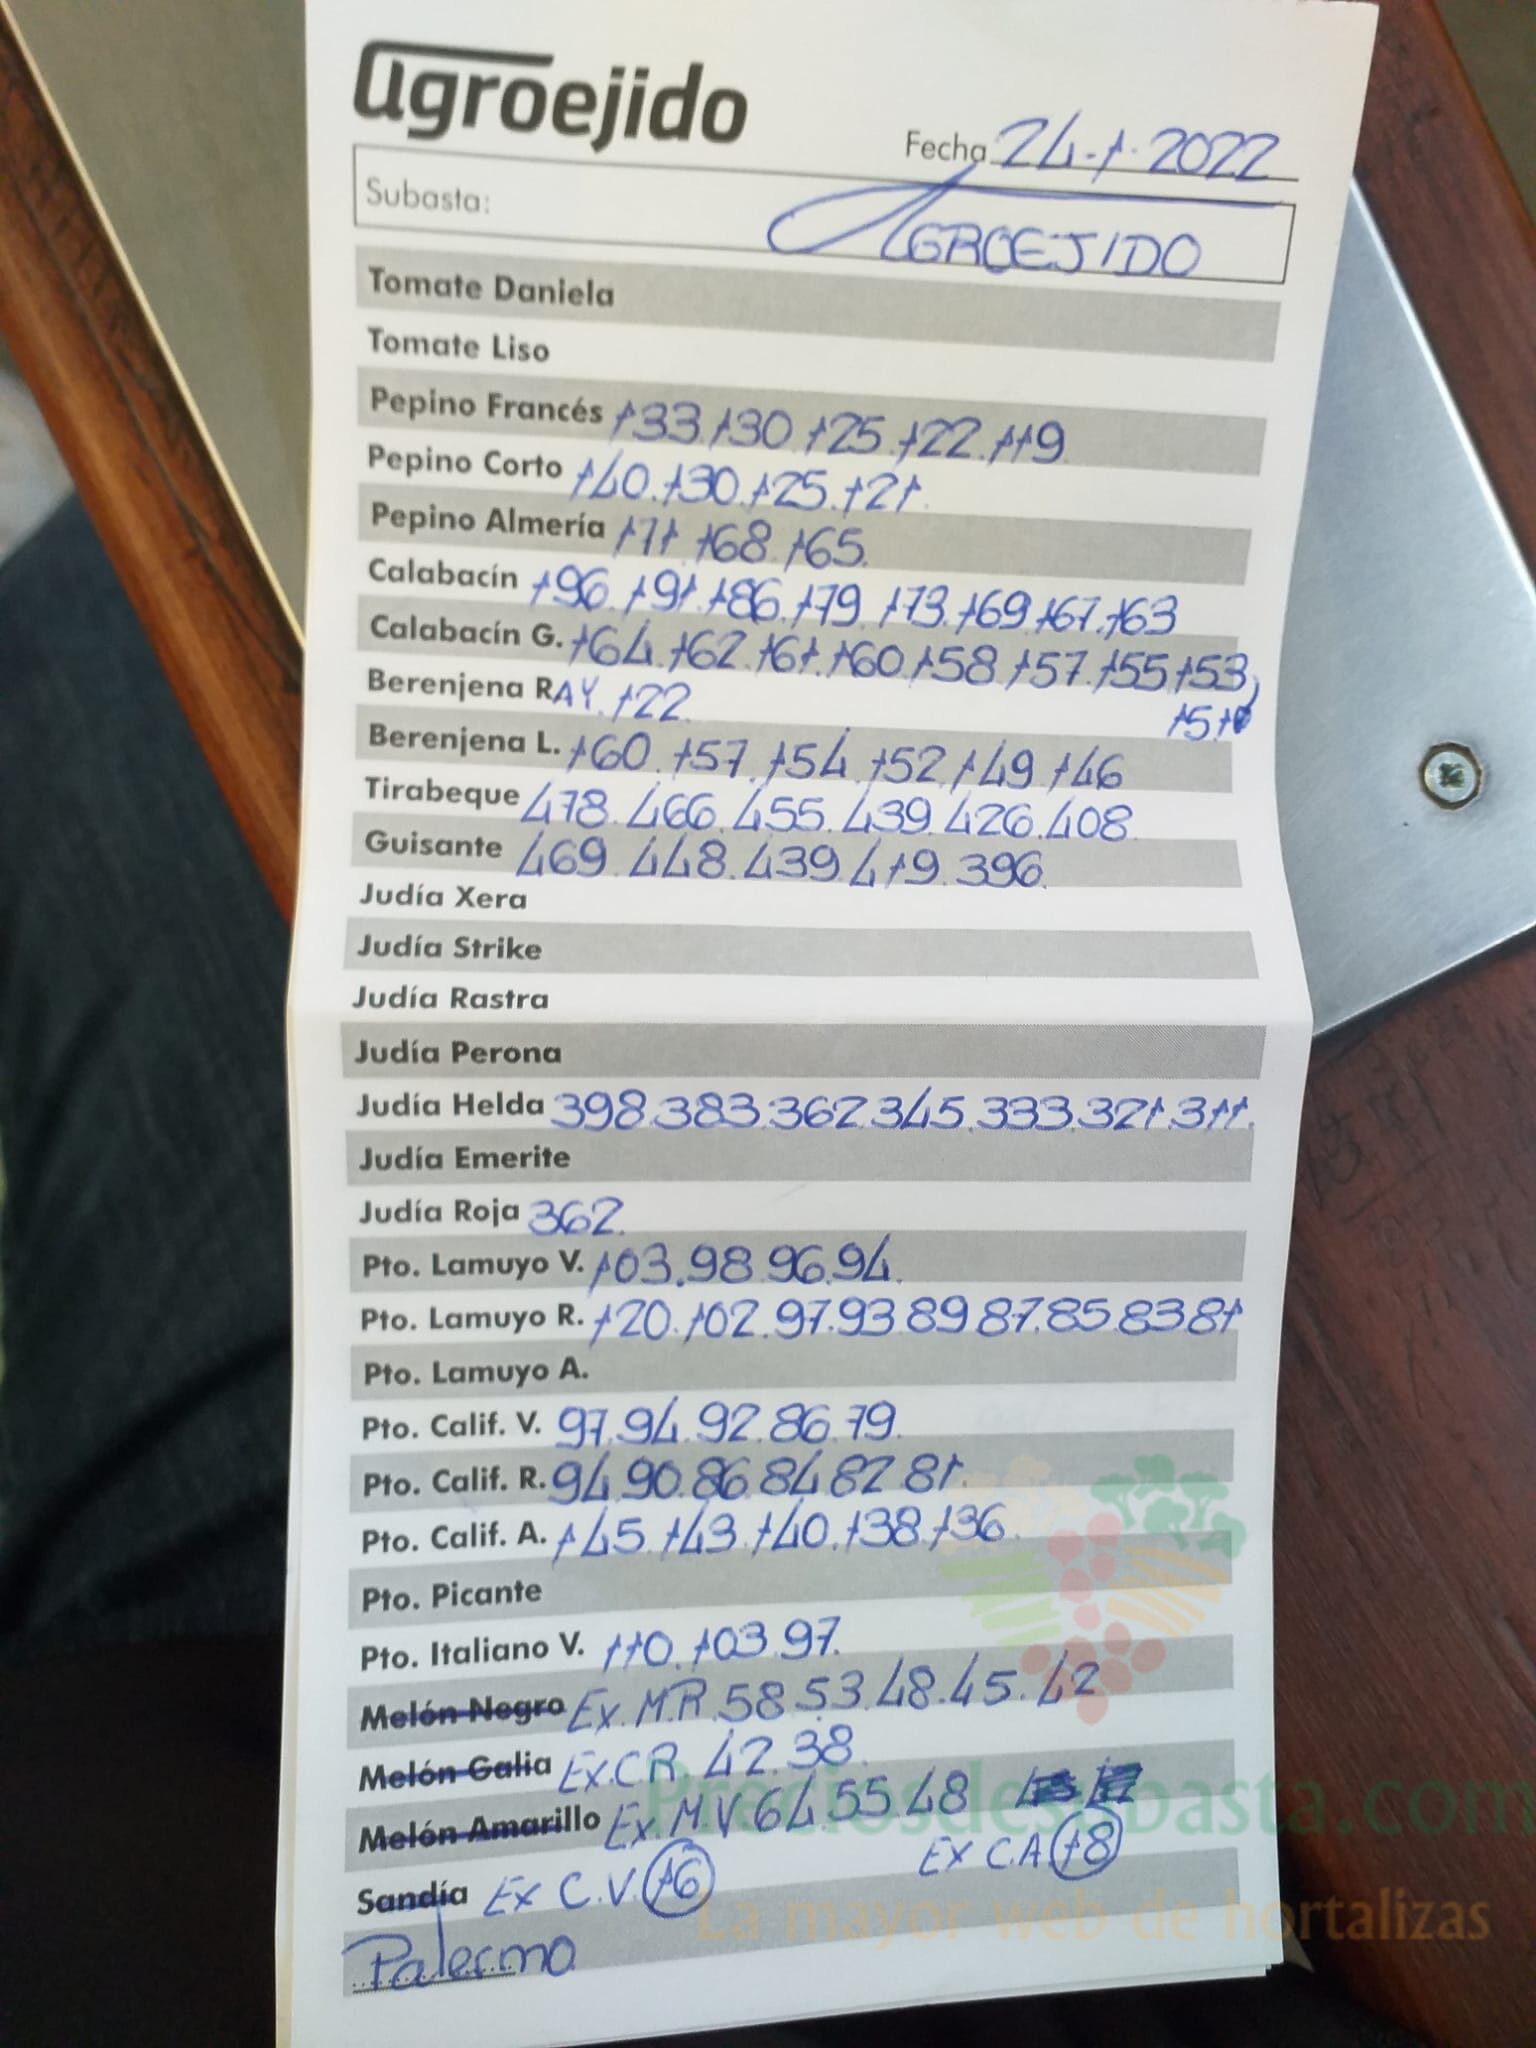 agroejido
Fecha 24-1-2022
Subasta: AGROEJIDO
Tomate Daniela
Tomate Liso
Pepino Francés 133.130.125.122.119
Pepino Corto 140.130.125.121.
Pepino Almería 171 168.165.
Calabacín 196.191.186.179.173.169.167.163
Calabacín G. 164.162.161.160.158.157.155.153,
151
Berenjena RAY. 122.
Berenjena L. 160.157.154.152.149.146
Tirabeque 478.466.455.439.426.408.
Guisante 469.448.439.419.396.
Judía Xera
Judía Strike
Judía Rastra
Judía Perona
Judía Helda 398.383.362.345.333.321.311.
Judía Emerite
Judía Roja 362.
Pto. Lamuyo V. 103.98.96.94.
Pto. Lamuyo R. 120.102.97.93.89.87.85.83.81
Pto. Lamuyo A.
Pto. Calif. V. 97.94.92.86.79.
Pto. Calif. R. 94.90.86.84.82.81.
Pto. Calif. A. 145.143.140.138.136.
Pto. Picante
Pto. Italiano V. 110.103.97.
Melón Negro Ex.M.R.58.53.48.45.42
Melón Galia Ex.C.R. 42.38.
Melón Amarillo Ex.M.V 64.55.48
Sandía Ex C.V. 16 Ex C.A 18
Palermo
Preciosdesubasta.com
La mayor web de hortalizas